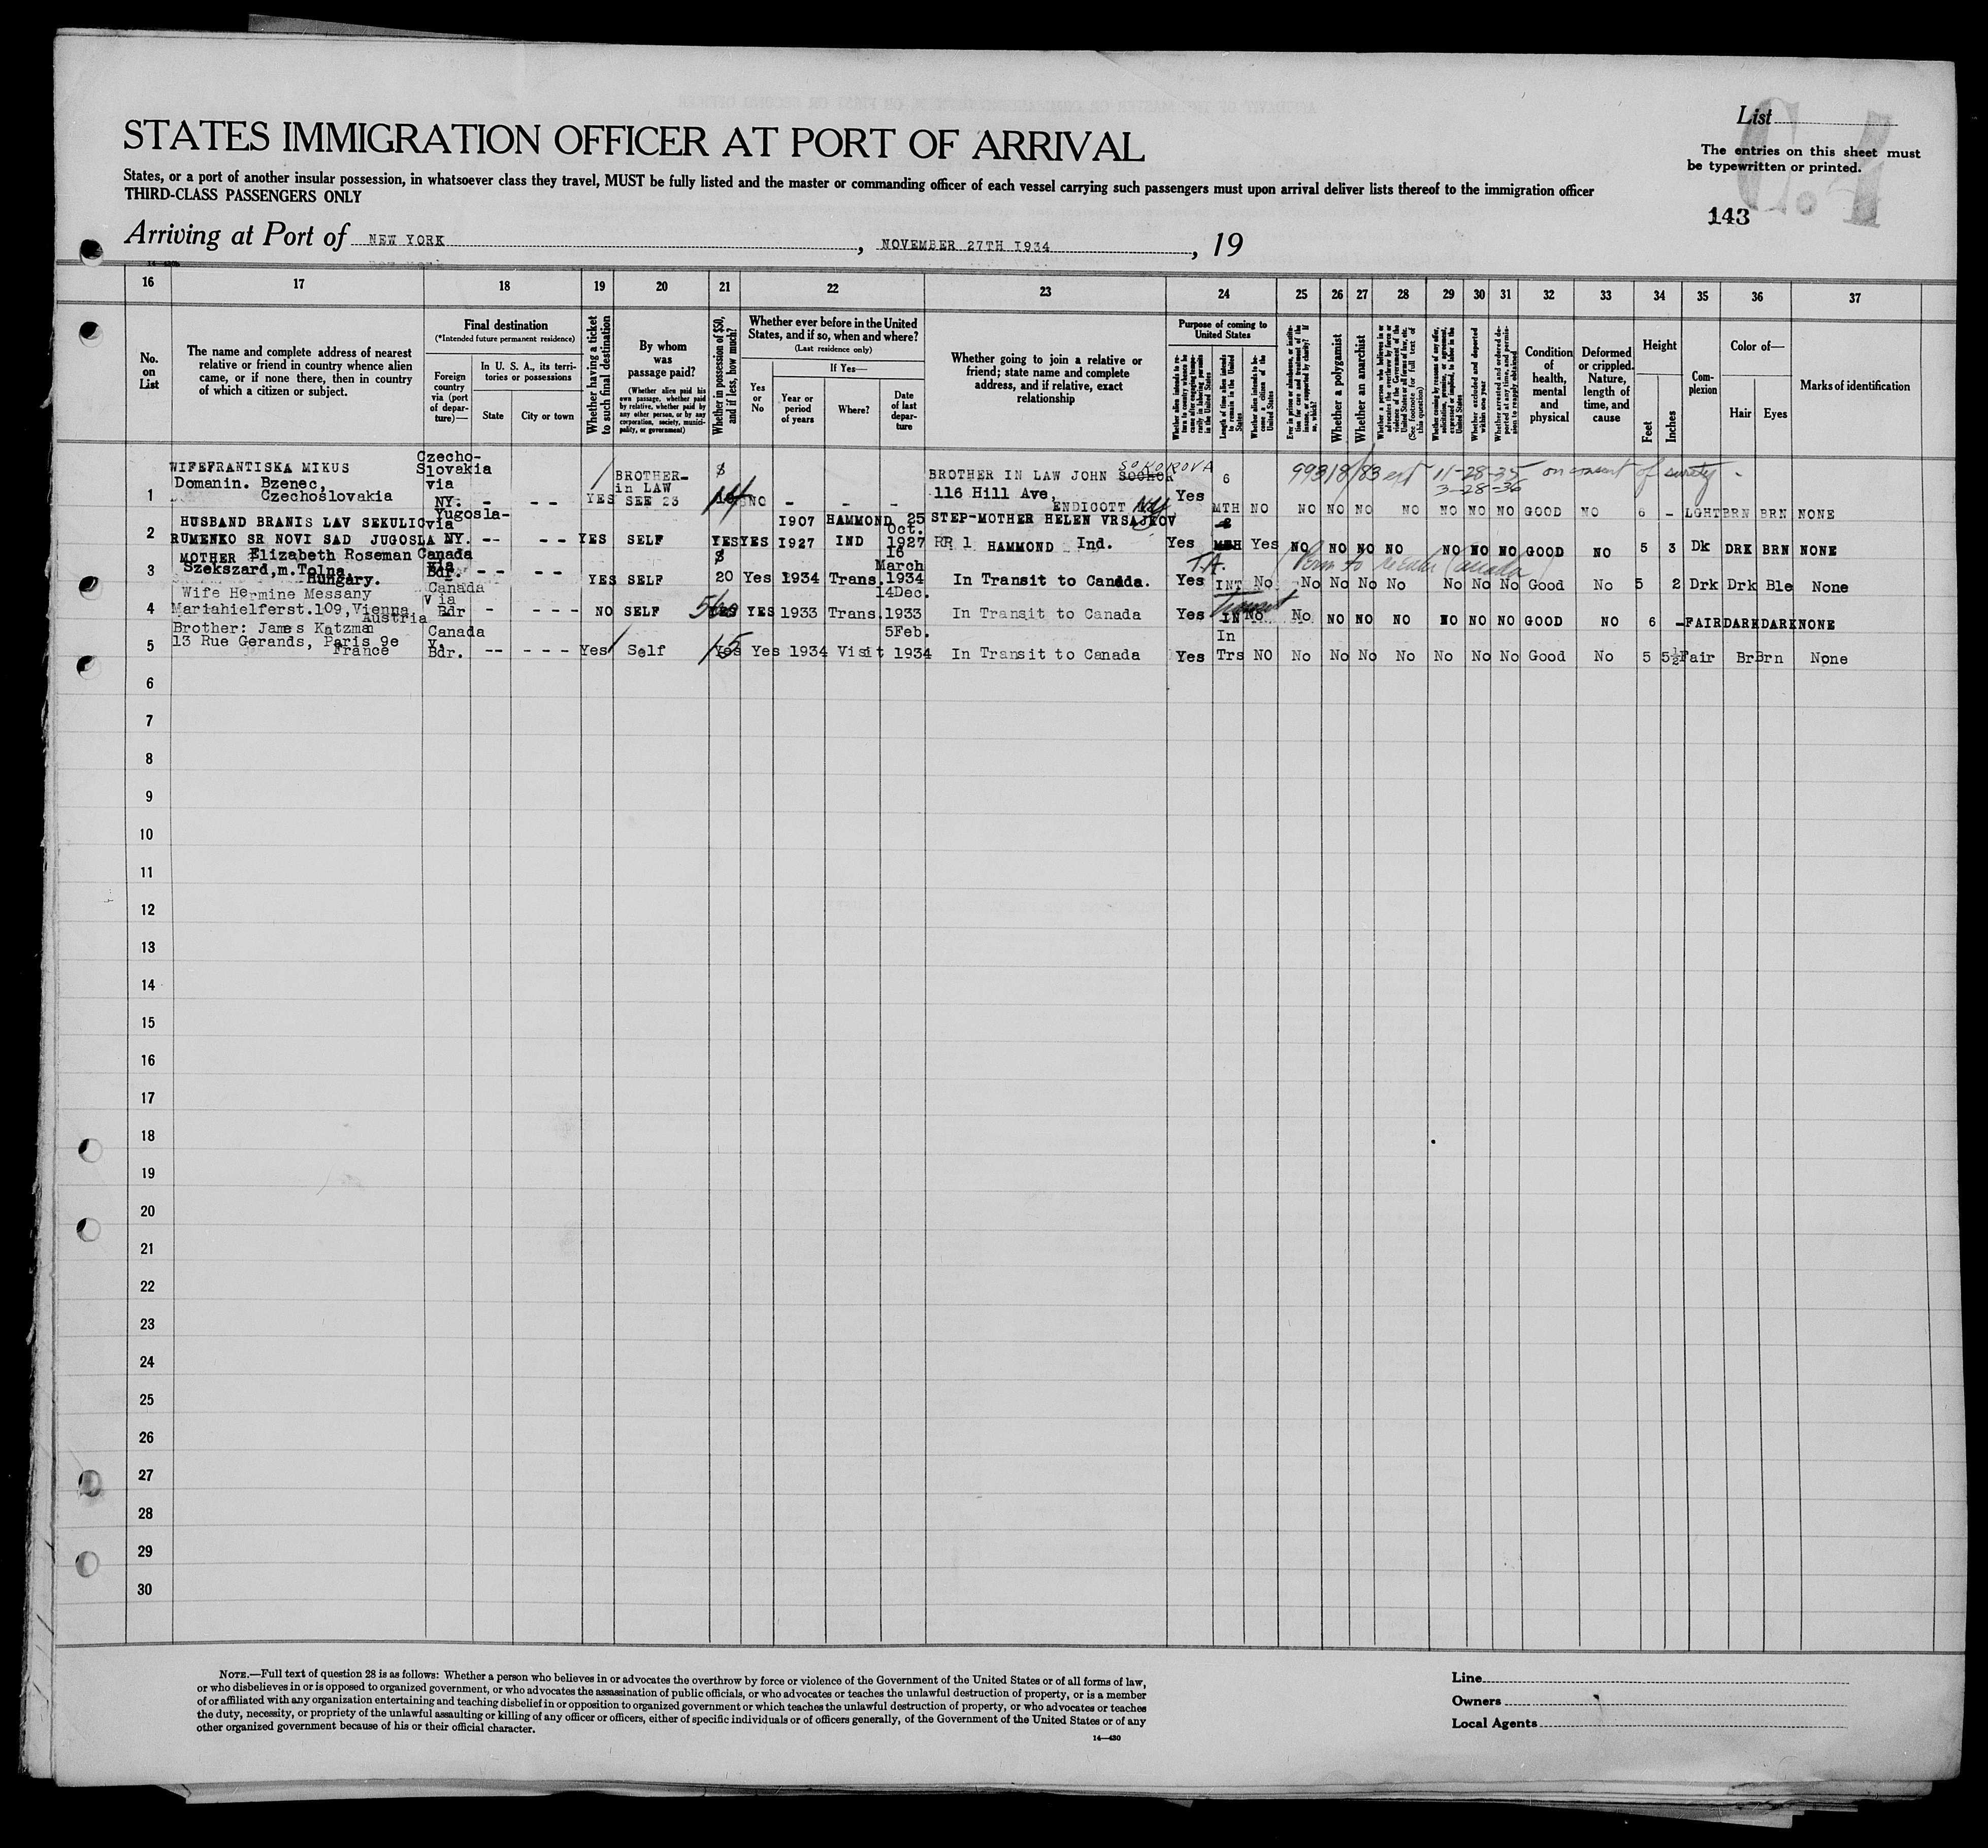 STATES IMMIGRATION OFFICER AT PORT OF ARRIVAL
List
The entries on this sheet must
be typewritten or printed.
C.4
143
States, or a port of another insular possession, in whatsoever class they travel, MUST be fully listed and the master or commanding officer of each vessel carrying such passengers must upon arrival deliver lists thereof to the immigration officer
THIRD-CLASS PASSENGERS ONLY
Arriving at Port of NEW YORK, NOVEMBER 27TH 1934, 19
16 17 18 19 20 21 22 23 24 25 26 27 28 29 30 31 32 33 34 35 36 37
No. on List
The name and complete address of nearest
relative or friend in country whence alien
came, or if none there, then in country
of which a citizen or subject.
Final destination
(*Intended future permanent residence)
Foreign country via (port of departure)—
In U. S. A., its territories or possessions
State
City or town
Whether having a ticket to such final destination
By whom was passage paid?
(Whether alien paid his own passage, whether paid by relative, whether paid by any other person, or by any corporation, society, municipality, or government)
Whether in possession of $50, and if less, how much?
Whether ever before in the United
States, and if so, when and where?
(Last residence only)
Yes or No
If Yes—
Year or period of years
Where?
Date of last departure
Whether going to join a relative or
friend; state name and complete
address, and if relative, exact
relationship
Purpose of coming to United States
Length of time alien intends to remain in the United States
Whether alien intends to become a citizen of the United States
Whether a polygamist
Whether an anarchist
Condition of health, mental and physical
Deformed or crippled. Nature, length of time, and cause
Height
Feet
Inches
Complexion
Color of—
Hair
Eyes
Marks of identification
1 WIFE FRANTISKA MIKUS
Domanin. Bzenec,
Czechoslovakia
Czecho-
Slovakia
via
NY. - - - YES BROTHER-
in LAW
SEE 23 $ 14 NO - - -
BROTHER IN LAW JOHN SOKOROVA
116 Hill Ave,
ENDICOTT NY
Yes 6 MTH NO NO NO NO NO NO NO NO GOOD NO 6 - LGHT BRN BRN NONE
99318/83 ext 11-28-35 on consent of surety -
3-28-36
2 HUSBAND BRANIS LAV SEKULIC
RUMENKO SR NOVI SAD JUGOSLA
Yugosla-
via
NY. -- -- YES SELF YES YES 1907
1927 HAMMOND
IND 25
Oct.
1927
STEP-MOTHER HELEN VRSAJKOV
RR 1 HAMMOND Ind.
Yes Yes NO NO NO NO NO NO NO GOOD NO 5 3 Dk DRK BRN NONE
3 MOTHER Elizabeth Roseman
Szekszard, m. Tolna,
Hungary.
Canada
via
Bdr. -- -- YES SELF $
20 Yes 1934 Trans. 16
March
1934
In Transit to Canada. Yes T.A. INT No No No No No No No No Good No 5 2 Drk Drk Ble None
4 Wife Hermine Messany
Mariahielferst.109, Vienna
Austria
Canada
Via
Bdr - --- NO SELF YES 1933 Trans. 14Dec.
1933
In Transit to Canada Yes Transit IN No No NO NO NO NO NO NO GOOD NO 6 - FAIR DARK DARK NONE
5 Brother: James Katzman
13 Rue Gerands, Paris 9e
France
Canada
v.
Bdr. -- --- Yes Self 15 Yes 1934 Visit 5Feb.
1934
In Transit to Canada Yes In
Trs NO No No No No No No No Good No 5 5½ Fair Br Brn None
6
7
8
9
10
11
12
13
14
15
16
17
18
19
20
21
22
23
24
25
26
27
28
29
30
NOTE.—Full text of question 28 is as follows: Whether a person who believes in or advocates the overthrow by force or violence of the Government of the United States or of all forms of law,
or who disbelieves in or is opposed to organized government, or who advocates the assassination of public officials, or who advocates or teaches the unlawful destruction of property, or is a member
of or affiliated with any organization entertaining and teaching disbelief in or opposition to organized government or which teaches the unlawful destruction of property, or who advocates or teaches
the duty, necessity, or propriety of the unlawful assaulting or killing of any officer or officers, either of specific individuals or of officers generally, of the Government of the United States or of any
other organized government because of his or their official character.
14—430
Line
Owners
Local Agents